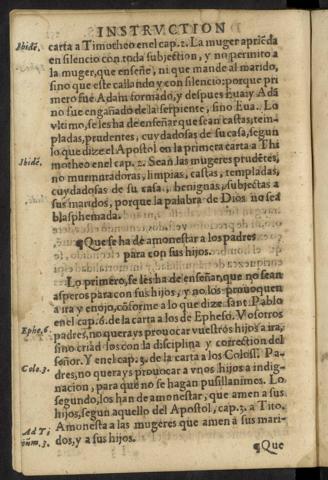 INSTRVCTION
Ibidẽ.
carta a Timotheo en el cap. 2. La muger aprẽda
en silencio con toda subjection, y no permito a
la muger, que enseñe, ni que mande al marido,
sino que este callando y con silencio: porque pri
mero fue Adam formado, y despues Eua: y Adã
no fue engañado de la serpiente, sino Eua. Lo
vltimo, se les ha de enseñar que sean castas, tem-
pladas, prudentes, cuydadosas de su casa, segun
lo que dize el Apostol en la primera carta a Thi
Ibidẽ.
motheo en el cap. 2. Seãn las mugeres prudẽtes,
no murmuradoras, limpias, castas, templadas,
cuydadosas de su casa, benignas, subjectas a
sus maridos, porque la palabra de Dios no sea
blasphemada.
¶Que se ha de amonestar a los padres
para con sus hijos.
Lo primero, se les ha de enseñar, que no sean
asperos para con sus hijos, y no los prouoquen
a ira y enojo, cõforme a lo que dize sant Pablo
en el cap. 6. de la carta a los de Epheso. Vosotros
Ephe. 6.
padres, no querays prouocar vuestros hijos a ira,
sino criad los con la disciplina y correction del
señor. Y en el cap. 3. de la carta a los Coloss. Pa-
Colo. 3.
dres, no querays prouocar a vros hijos a indig-
nacion, para que no se hagan pusillanimes. Lo
segundo, los han de amonestar, que amen a sus
hijos, segun aquello del Apostol, cap. 3. a Tito.
Ad Ti;
Amonesta a las mugeres que amen a sus mari-
3.
dos, y a sus hijos.
¶Que